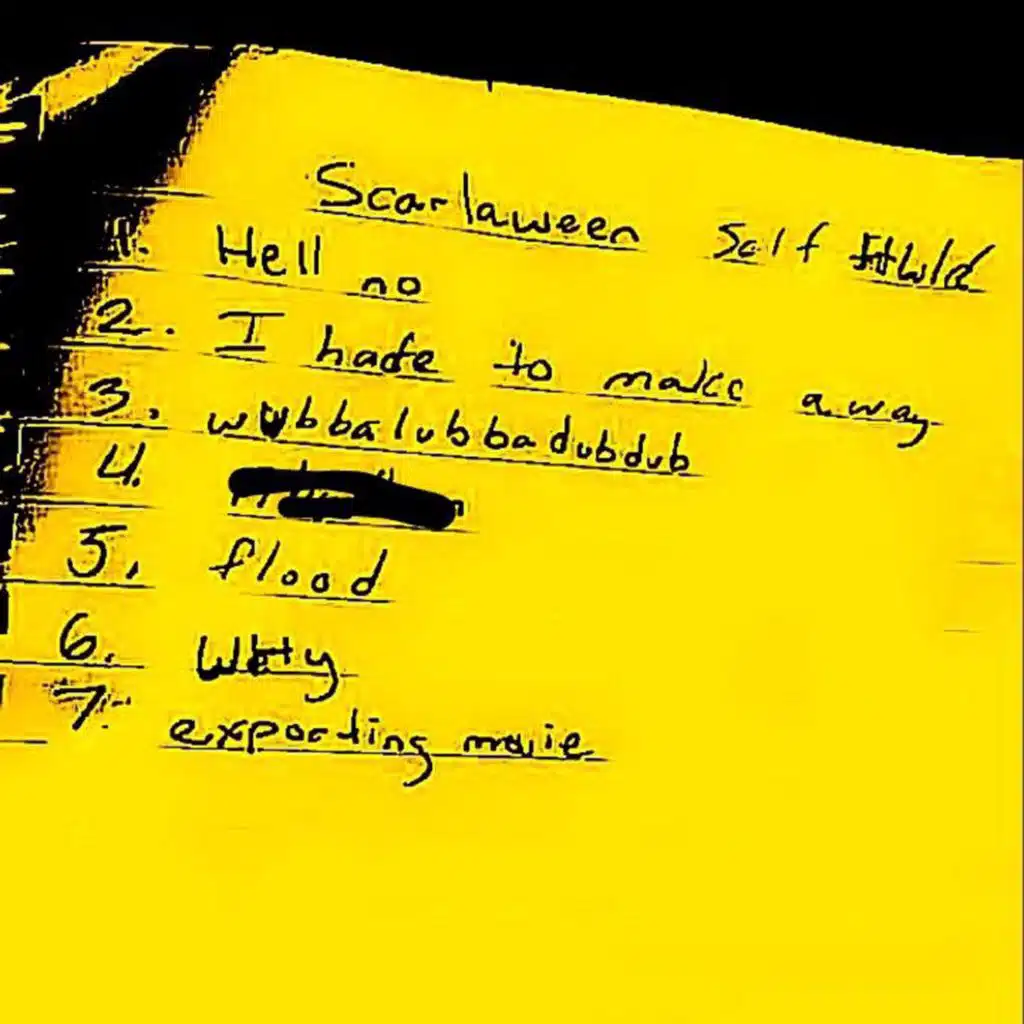 Scarlaween Self
1. Hell no
2. I hate to make away
3. wubbalubbadubdub
4.
5. flood
6.
7. exporting movie